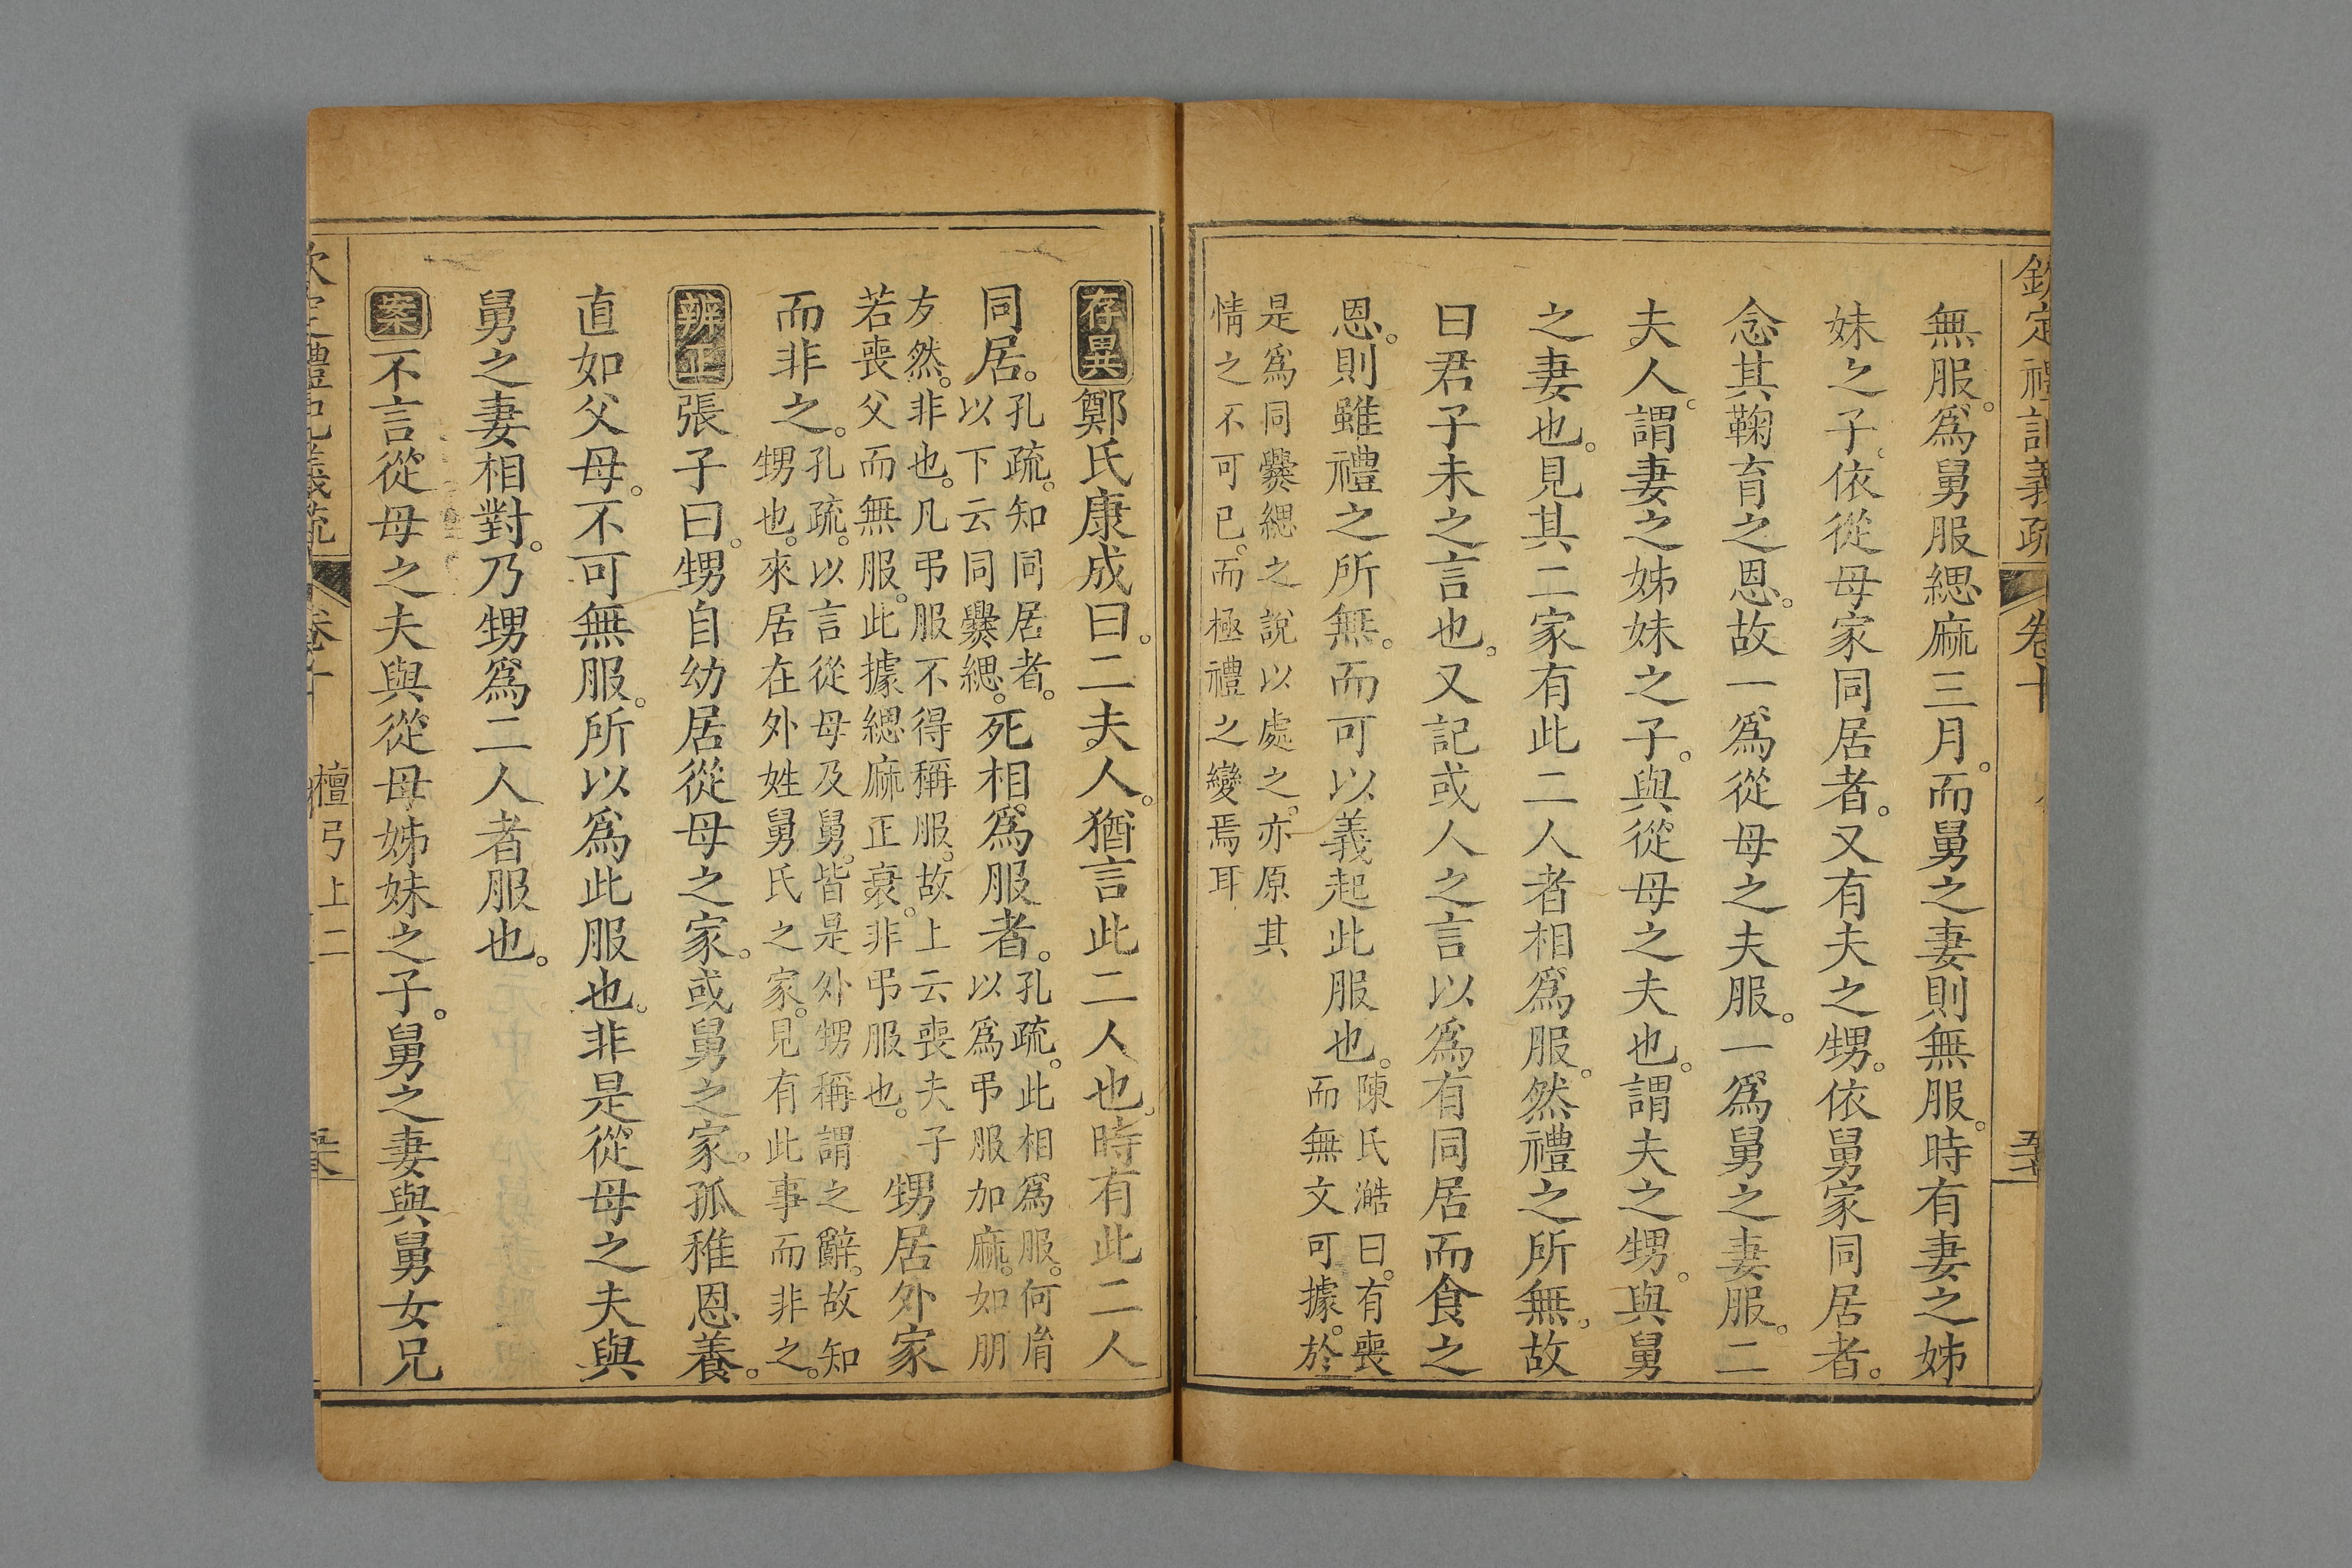 欽定禮記義疏 卷十
無服。爲舅服緦麻三月。而舅之妻則無服。時有妻之姊
妹之子。依從母家同居者。又有夫之甥。依舅家同居者。
念其鞠育之恩。故一爲從母之夫服。一爲舅之妻服。二
夫人。謂妻之姊妹之子。與從母之夫也。謂夫之甥。與舅
之妻也。見其二家有此二人者相爲服。然禮之所無。故
曰君子未之言也。又記或人之言以爲有同居而食之
恩。則雖禮之所無。而可以義起此服也。
陳氏澔曰。有喪
而無文可據。於
是爲同爨緦之說以處之。亦原其
情之不可已。而極禮之變焉耳
存異鄭氏康成曰。二夫人。猶言此二人也。時有此二人
同居。
孔疏。知同居者。
以下云同爨緦。
死相爲服者。
孔疏。此相爲服。何胤
以爲弔服加麻。如朋
友然。非也。凡弔服不得稱服。故上云喪夫子
若喪父而無服。此據緦麻正衰。非弔服也。
甥居外家
而非之。
孔疏。以言從母及舅。皆是外甥稱謂之辭。故知
甥也。來居在外姓舅氏之家。見有此事而非之。
辨正張子曰。甥自幼居從母之家。或舅之家。孤稚恩養。
直如父母。不可無服。所以爲此服也。非是從母之夫與
舅之妻相對。乃甥爲二人者服也。
案不言從母之夫與從母姊妹之子。舅之妻與舅女兄
欽定禮記義疏 卷十 檀弓上二